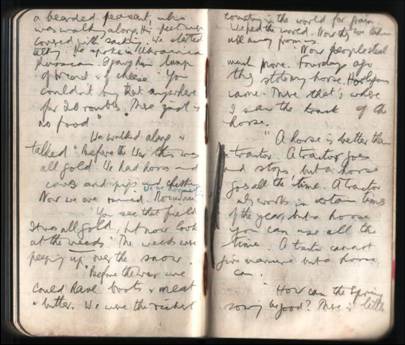 a bearded peasant, who
was walking along. His feet were
covered with sacking. We started
talking. He spoke in Ukrainian
Russian. I gave him a lump
of bread & of cheese. "You
couldn't buy that anywhere
for 20 roubles. There just is
no food."
We walked along &
talked "Before the War this was
all gold. We had horses and
cows and pigs
Now we are ruined.
"You see that field
It was all gold, but now look
at the weeds." The weeds were
peeping up over the snow.
"Before the war we
could have boots & meat
& butter. We were the richest
country in the world for grain.
We fed the world. Now they have taken
all away from us.
"Now people steal
much more. Four days ago
they stole my horse. Hooligans
came. There that's where
I saw the track of the
horse."
"A horse is better than
a tractor. A tractor goes
and stops, but a horse
goes all the time. A tractor
only works in certain times
of the year, but a horse
you can use all the
time. A tractor cannot
give manure but a horse
can.
"How can the Spring
sowing be good? There is little